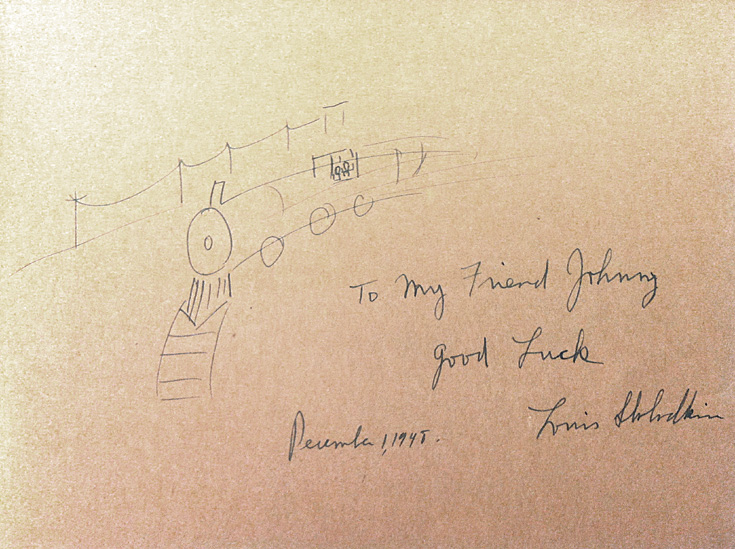 To My Friend Johnny
Good Luck
Louis Slobodkin
December 1, 1945.